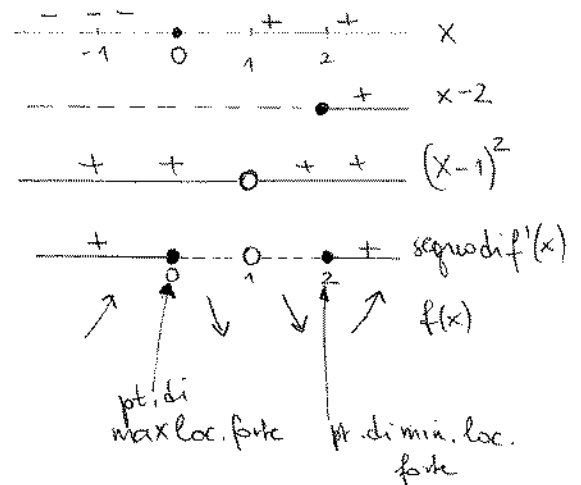 - - - + + x
-1 0 1 2
+ x-2
+ + + + (x-1)²
+ + segno di f'(x)
0 1 2
↗ ↘ ↘ ↗ f(x)
pt. di max loc. forte
pt. di min. loc. forte